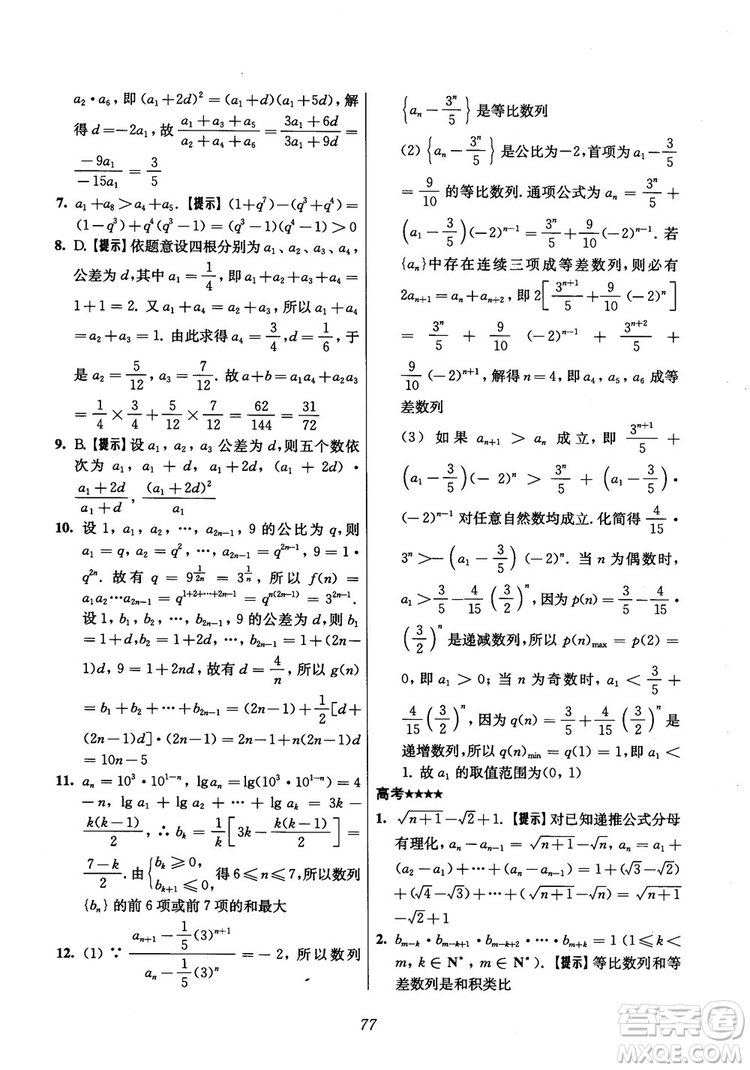 a₂·a₆,即(a₁+2d)²=(a₁+d)(a₁+5d),解
得d=-2a₁,故(a₁+a₃+a₅)/(a₂+a₄+a₆)=(3a₁+6d)/(3a₁+9d)=
(-9a₁)/(-15a₁)=3/5
7. a₁+a₈>a₄+a₅.【提示】(1+q⁷)-(q³+q⁴)=
(1-q³)+q⁴(q³-1)=(1-q³)(1-q⁴)>0
8. D.【提示】依题意设四根分别为a₁、a₂、a₃、a₄,
公差为d,其中a₁=1/4,即a₁+a₂+a₃+a₄=
1+1=2. 又a₁+a₄=a₂+a₃,所以a₁+a₄
=a₂+a₃=1. 由此求得a₄=3/4,d=1/6,于
是a₂=5/12,a₃=7/12. 故a+b=a₁a₄+a₂a₃
=1/4×3/4+5/12×7/12=62/144=31/72
9. B.【提示】设a₁,a₂,a₃公差为d,则五个数依
次为a₁,a₁+d,a₁+2d,(a₁+2d)·
(a₁+2d)/(a₁+d),(a₁+2d)²/a₁
10. 设1,a₁,a₂,…,a₂ₙ₋₁,9的公比为q,则
a₁=q,a₂=q²,…,a₂ₙ₋₁=q²ⁿ⁻¹,9=1·
q²ⁿ. 故有q=9^(1/2n)=3^(1/n),所以f(n)=
a₁a₂…a₂ₙ₋₁=q^(1+2+…+2n-1)=q^(n(2n-1))=3²ⁿ⁻¹.
设1,b₁,b₂,…,b₂ₙ₋₁,9的公差为d,则b₁
=1+d,b₂=1+2d,…,b₂ₙ₋₁=1+(2n-
1)d,9=1+2nd,故有d=4/n,所以g(n)
=b₁+b₂+…+b₂ₙ₋₁=(2n-1)+1/2[d+
(2n-1)d]·(2n-1)=(2n-1)+4(2n-1)
=10n-5
11. aₙ=10³·10¹⁻ⁿ,lgaₙ=lg(10³·10¹⁻ⁿ)=4
-n,lg a₁+lg a₂+…+lg aₖ=3k-
k(k-1)/2,∴bₖ=1/k[3k-k(k-1)/2]=
(7-k)/2. 由{bₖ≥0, bₖ₊₁≤0,得6≤n≤7,所以数列
{bₙ}的前6项或前7项的和最大
12. (1) ∵(aₙ₊₁-1/5(3)ⁿ⁺¹)/(aₙ-1/5(3)ⁿ)=-2,所以数列
{aₙ-3ⁿ/5}是等比数列
(2) {aₙ-3ⁿ/5}是公比为-2,首项为a₁-3/5
=9/10的等比数列. 通项公式为aₙ=3ⁿ/5
+(a₁-3/5)(-2)ⁿ⁻¹=3ⁿ/5+9/10(-2)ⁿ⁻¹. 若
{aₙ}中存在连续三项成等差数列,则必有
2aₙ₊₁=aₙ+aₙ₊₂,即2[3ⁿ⁺¹/5+9/10(-2)ⁿ]
=3ⁿ/5+9/10(-2)ⁿ⁻¹+3ⁿ⁺²/5+
9/10(-2)ⁿ⁺¹,解得n=4,即a₄,a₅,a₆成等
差数列
(3) 如果aₙ₊₁>aₙ成立,即3ⁿ⁺¹/5+
(a₁-3/5)(-2)ⁿ>3ⁿ/5+(a₁-3/5)·
(-2)ⁿ⁻¹对任意自然数均成立. 化简得4/15·
3ⁿ>-(a₁-3/5)(-2)ⁿ. 当n为偶数时,
a₁>3/5-4/15(3/2)ⁿ,因为p(n)=3/5-4/15·
(3/2)ⁿ是递减数列,所以p(n)max=p(2)=
0,即a₁>0;当n为奇数时,a₁<3/5+
4/15(3/2)ⁿ,因为q(n)=3/5+4/15(3/2)ⁿ是
递增数列,所以q(n)min=q(1)=1,即a₁<
1. 故a₁的取值范围为(0,1)
高考★★★★
1. √(n+1)-√2+1.【提示】对已知递推公式分母
有理化,aₙ-aₙ₋₁=√(n+1)-√n,aₙ=a₁+
(a₂-a₁)+…+(aₙ-aₙ₋₁)=1+(√3-√2)
+(√4-√3)+…+(√(n+1)-√n)=√(n+1)
-√2+1
2. bₘ₋ₖ·bₘ₋ₖ₊₁·bₘ₋ₖ₊₂·…·bₘ₊ₖ=1(1≤k<
m,k∈N*,m∈N*).【提示】等比数列和等
差数列是和积类比
77
答案圈
MXQE.COM